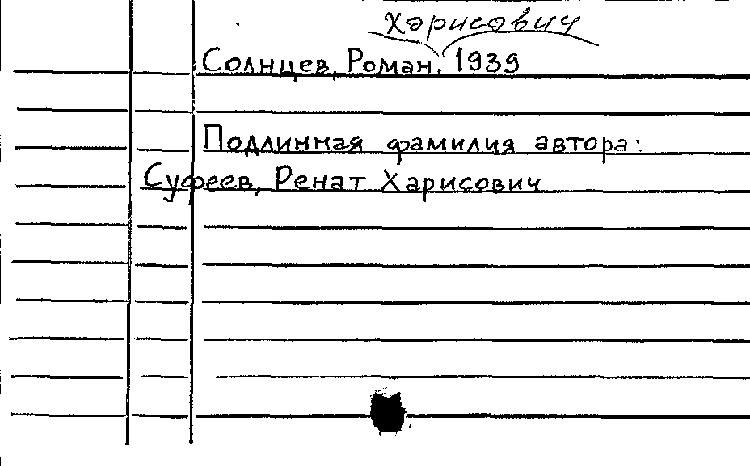 Харисович
Солнцев, Роман, 1939
Подлинная фамилия автора:
Суфеев, Ренат Харисович